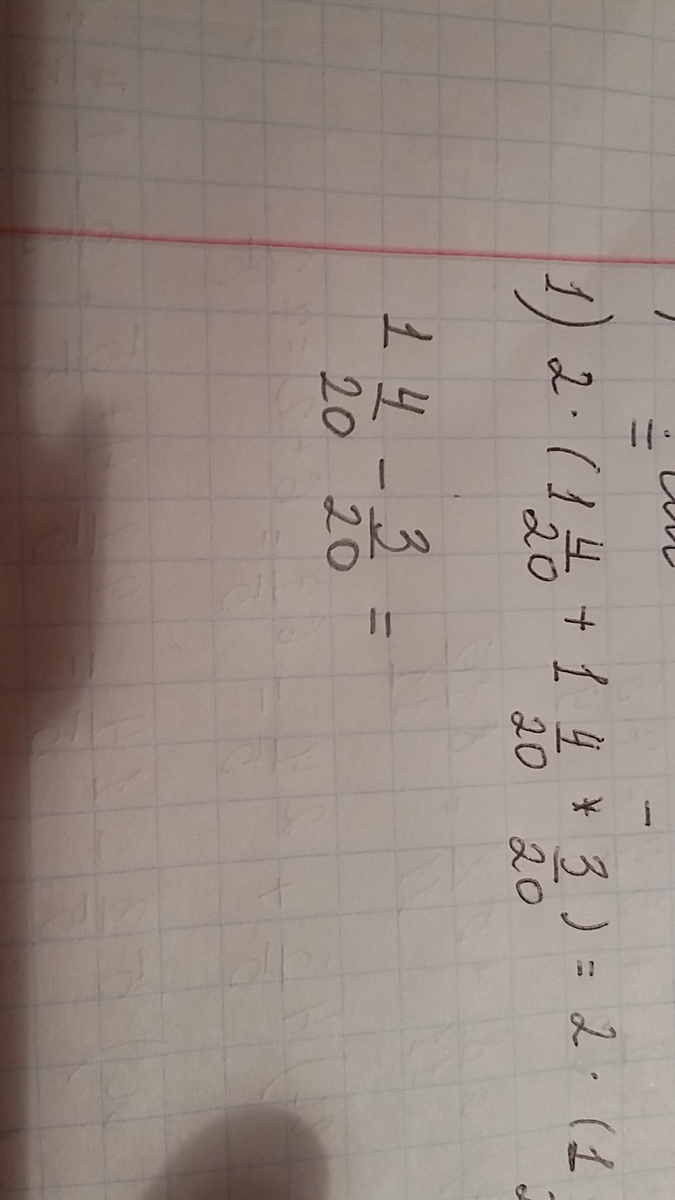 1) 2 · (1 4/20 + 1 4/20 * 3/20) = 2 · (1
1 4/20 - 3/20 =